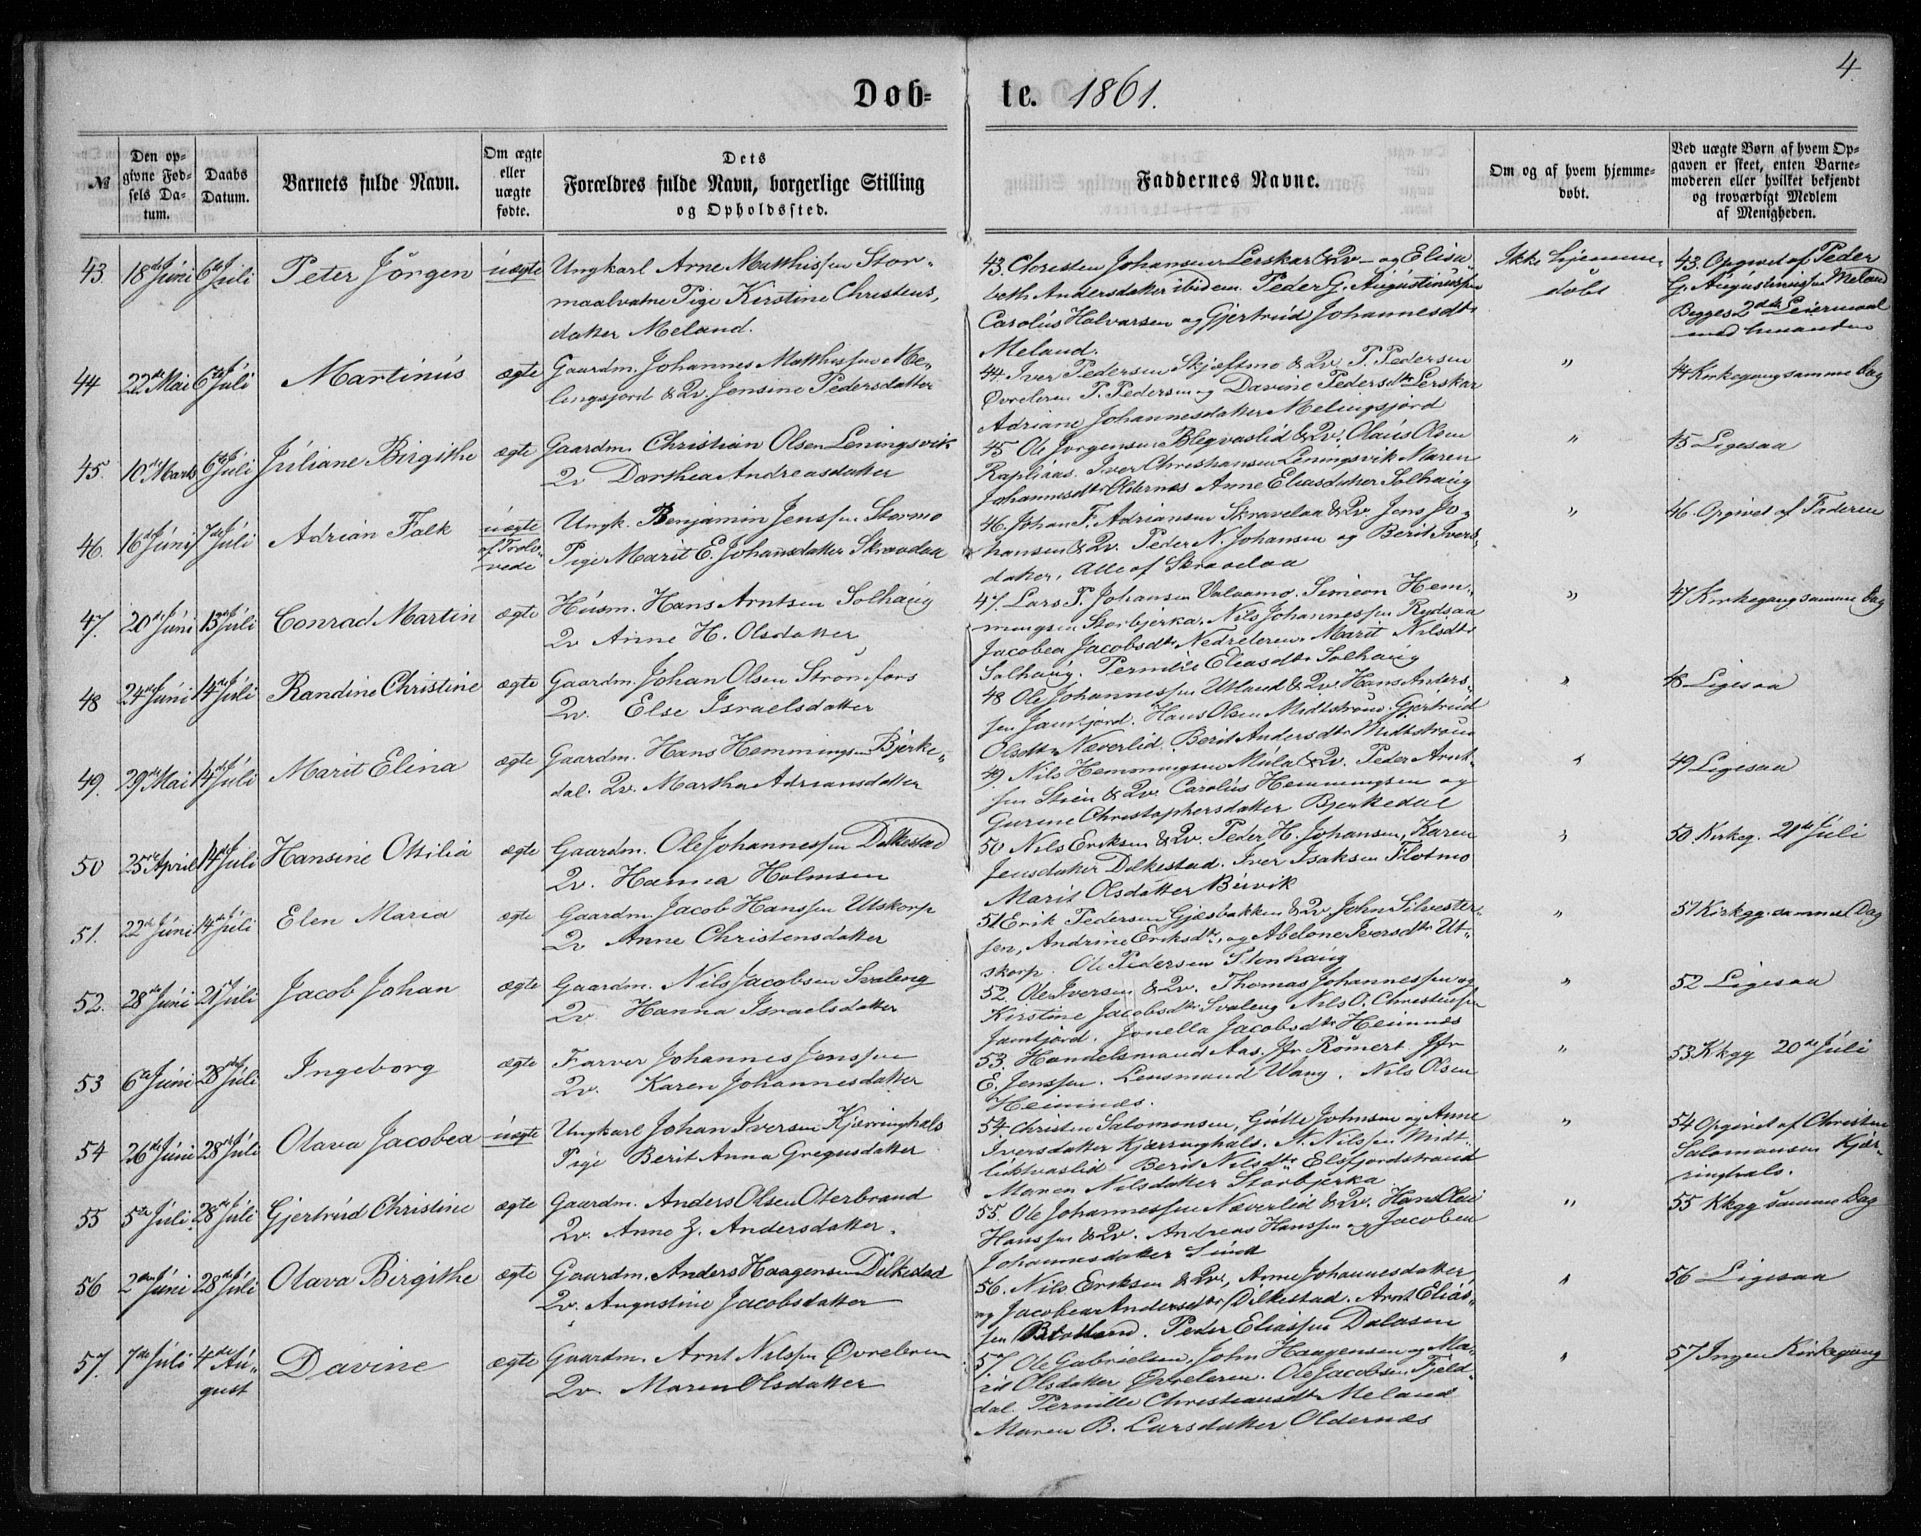 4
Døb- te. 1861.
№
Den op-
givne Fød-
sels Da-
tum.
Daabs
Datum.
Barnets fulde Navn.
Om ægte
eller
uægte
fødte.
Dets
Forældres fulde Navn, borgerlige Stilling
og Opholdssted.
Faddernes Navne.
Om og af hvem hjemme-
døbt.
Ved uægte Børn af hvem Op-
gaven er skeet, enten Barne-
moderen eller hvilket bekjendt
og troværdigt Medlem
af Menigheden.
43. 18de Júni 6te Júli Peter Jörgen úægte
Ungkarl Arne Matthissen Stor-
maalvatne Pige Kirstine Christens,
datter Meland.
43. Christen Johansen Lerskar & Qv – og Elisa
beth Andersdatter ibidem. Peder G. Aúgústinússen
Carolús Halvarsen og Gjertrúd Johannesdtr
Meland.
Ikke hjemme-
døbt
43. Opgivet af Peder
G. Aúgústinússen Meland
Begges 2det Leiermaal
med hinanden
44 22de Mai 6te Júli Martinús ægte
Gaardm. Johannes Matthissen Me-
lingsjord & Qv. Jensine Pedersdatter
44. Iver Pedersen Skjæftmo & Qv. P. Pedersen
Øvreleren P. Pedersen og Davine Pedersdtr Lerskar
Adriane Johannesdatter Melingsjord
"
44 Kirkegang samme Dag
45. 10de Marts 6te Júli Júliane Birgithe ægte
Gaardm. Christian Olsen Leningsvik
Qv Dorthea Andreasdatter
45 Ole Jörgensen Blegvaslid & Qv. Olaús Olsen
Rapliaas. Iver Christiansen Leningsvik Maren
Johannesdtr Oldernæs Anne Eliasdatter Solhaúg
"
45 Ligesaa
46. 16de Júni 7de Júli Adrian Falk úægte
af Trolo-
vede
Ungk. Benjamin Jenssen Stormo
Pige Marit E. Johansdatter Skravlaa
46. Johan F. Adriansen Skravlaa & Qv. Jens Jo-
hansen & Qv. Peder N. Johansen og Berit Ivers-
datter, Alle af Skravlaa
"
46. Opgivet af Faderen
47. 20de Júni 13de Júli Conrad Martin ægte
Húsm. Hans Arntsen Solhaúg
Qv Anne H. Olsdatter
47. Lars P. Johansen Valaamo. Simeon Hem-
mingsen Storbjerka. Nils Johannessen Rydsaa
Jacobea Jacobsdtr Nedreleren. Marit Nilsdtr
Solhaúg. Pernille Eliasdtr Solhaúg
"
47 Kirkegang samme Dag
48 24de Júni 14de Júli Randine Christine ægte
Gaardm. Johan Olsen Strömfors
Qv. Else Israelsdatter
48 Ole Johannessen Utland & Qv. Hans Anders-
sen Jamtjord. Hans Olsen Midtström. Gjertrúd
Olsdtr Næverlid. Berit Andersdtr Midtström
"
48 Ligesaa
49. 29de Mai 14de Júli Marit Elina ægte
Gaardm. Hans Hemmingsen Bjerke-
dal. Qv. Martha Adriansdatter
49. Nils Hemmingsen Múla & Qv. Peder Arnt-
sen Stien & Qv. Carolús Hemmingsen og
Gurine Christophersdatter Bjerkedal
"
49 Ligesaa
50 25de April 14de Júli Hansine Otilia ægte
Gaardm. Ole Johannessen Dilkestad
Qv. Hanna Holmsen
50 Nils Eriksen & Qv. Peder H. Johansen, Karen
Jensdatter Dilkestad. Iver Isaksen Flotmo
Marit Olsdatter Birvik
"
50. Kirkeg. 21de Júli
51. 22de Júni 14de Júli Elen Maria ægte
Gaardm. Jacob Hanssen Utskorp
Qv Anne Christensdatter
51 Erik Pedersen Gjæsbakken & Qv John Silvester-
sen, Andrine Eriksdtr, og Abelone Iversdtr Ut-
skorp. Ole Pedersen Stenhaúg
"
51 Kirkgg. samme Dag
52. 28de Júni 21de Júli Jacob Johan ægte
Gaardm. Nils Jacobsen Svaleng
Qv. Hanna Israelsdatter
52. Ole Iversen & Qv. Thomas Johannessen og
Kirstine Jacobsdtr Svaleng Nils O. Christensen
Jamtjord. Jonella Jacobsdtr Heimnes
"
52 Ligesaa
53 6te Júni 28de Júli Ingeborg ægte
Farver Johannes Jenssen
Qv. Karen Johannesdatter
53. Handelsmand Aas. Jfr Römert. Jfr
E. Jenssen. Lensmand Wang. Nils Olsen
Heimnæs.
"
53 Kkgg 20de Júli
54 26de Júni 28de Júli Olava Jacobea úægte
Ungkarl Johan Iversen Kjærringhals
Pige Berit Anna Gregusdatter
54 Christen Salomonsen, Gútte Johnsen og Anne
Iversdatter Kjærringhals. N. Nilssen Midt-
lidtvaslid Berit Nilsdtr Elsfjordstrand
Maren Nilsdatter Storbjerka
"
54 Opgivet af Christen
Salomonsen Kjær-
ringhals.
55 5te Júli 28de Júli Gjertrúd Christine ægte
Gaardm. Anders Olsen Oterbrand
Qv. Anne Z. Andersdatter.
55 Ole Johannessen Næverlid & Qv. Hans Olai
Hanssen & Qv. Andreas Hanssen og Jacobea
Johannesdatter Súnd
"
55 Kkgg samme Dag
56 2den Júni 28de Júli Olava Birgithe ægte
Gaardm. Anders Haagensen Dilkestad
Qv. Augustine Jacobsdatter
56. Nils Eriksen & Qv, Anne Johannesdatter
og Jacobea Andersdtr Dilkestad. Arnt Elias-
sen. Peder Eliassen Dalosen
"
56 Ligesaa
57. 7de Júli 4de Aú-
gust Davine ægte
Gaardm. Arnt Nilssen Øvreleren
Qv. Maren Olsdatter
57 Ole Gabrielsen, John Haagensen og Ma-
rit Olsdatter Øvreleren. Ole Jacobsen Fjeld-
dal. Pernille Christiansdtr Meland
Maren B. Larsdatter Oldernæs
"
57 Ingen Kirkegang